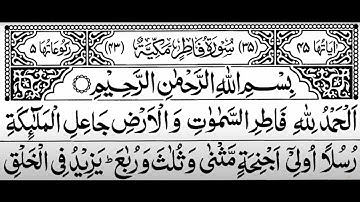 اٰيَاتُهَا ٤٥ (٣٥) سُوْرَةُ فَاطِرٍ مَكِّيَّةٌ (٤٣) رُكُوْعَاتُهَا ٥
بِسْمِ اللّٰهِ الرَّحْمٰنِ الرَّحِيْمِ
اَلْحَمْدُ لِلّٰهِ فَاطِرِ السَّمٰوٰتِ وَالْاَرْضِ جَاعِلِ الْمَلٰٓئِكَةِ
رُسُلًا اُولِيْٓ اَجْنِحَةٍ مَّثْنٰى وَثُلٰثَ وَرُبٰعَ ؕ يَزِيْدُ فِى الْخَلْقِ